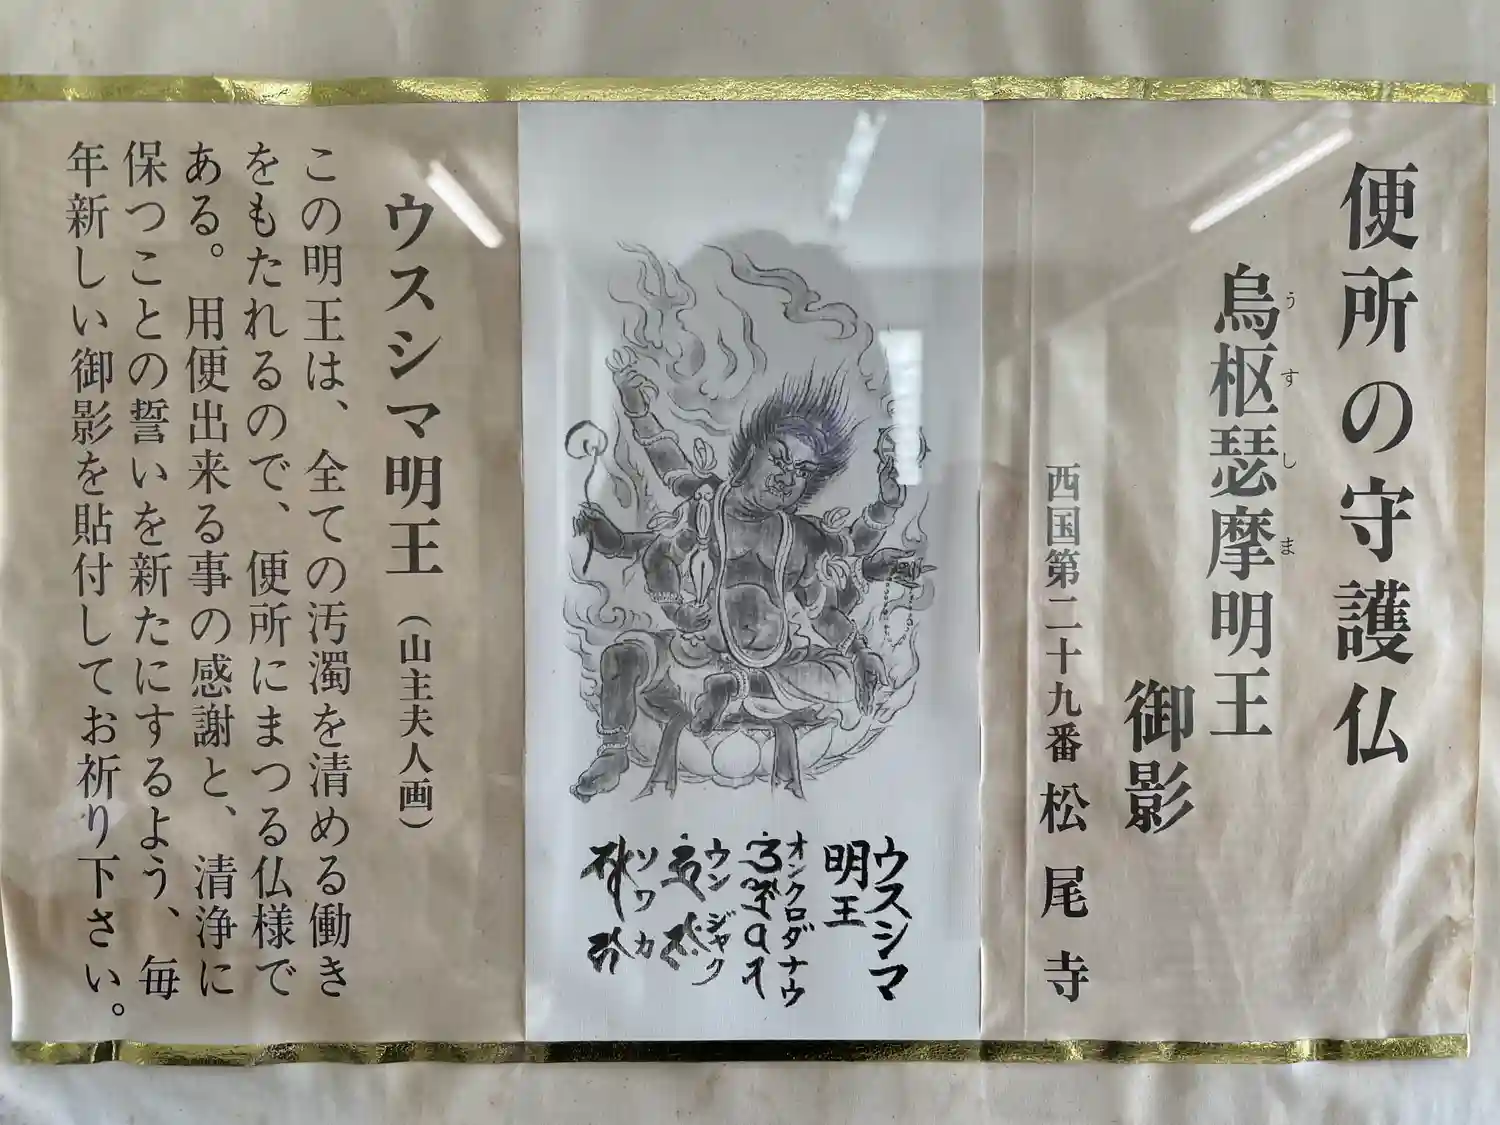 便所の守護仏
烏枢瑟摩明王
うすしま
御影
西国第二十九番 松尾寺
ウスシマ
明王
オンクロダナウ
ウンジャク
ソワカ
ウスシマ明王(山主夫人画)
この明王は、全ての汚濁を清める働き
をもたれるので、便所にまつる仏様で
ある。用便出来る事の感謝と、清浄に
保つことの誓いを新たにするよう、毎
年新しい御影を貼付してお祈り下さい。